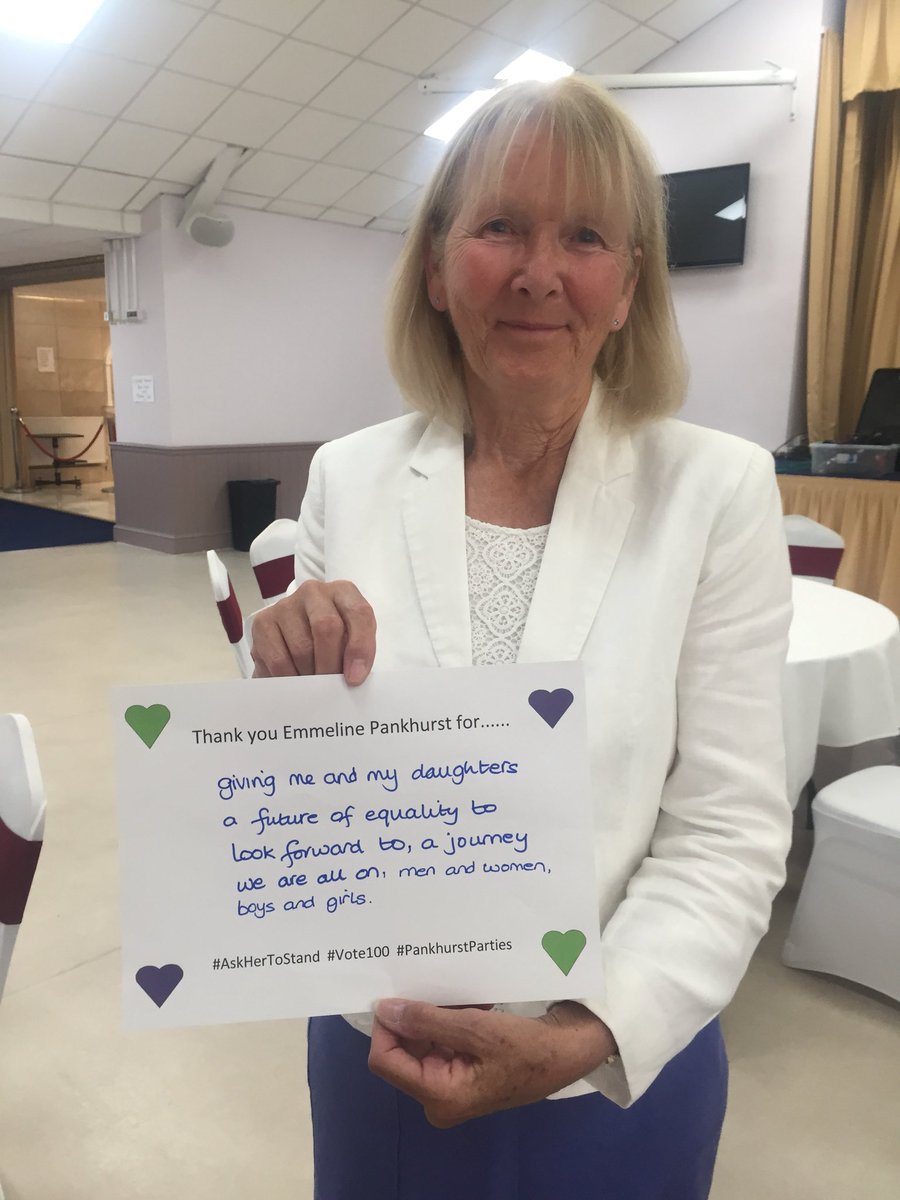 Thank you Emmeline Pankhurst for......
giving me and my daughters
a future of equality to
look forward to, a journey
we are all on, men and women,
boys and girls.
#AskHerToStand #Vote100 #PankhurstParties